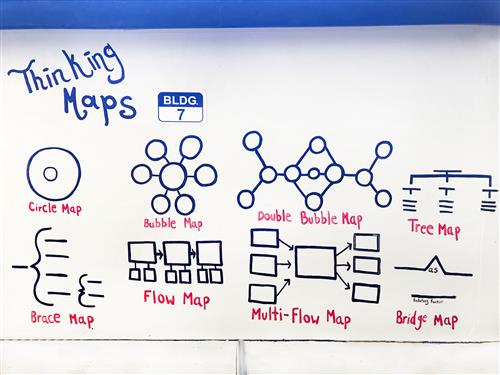 Thinking
Maps
BLDG.
7
Circle Map
Bubble Map
Double Bubble Map
Tree Map
Brace Map
Flow Map
Multi-Flow Map
as
Bridge Map